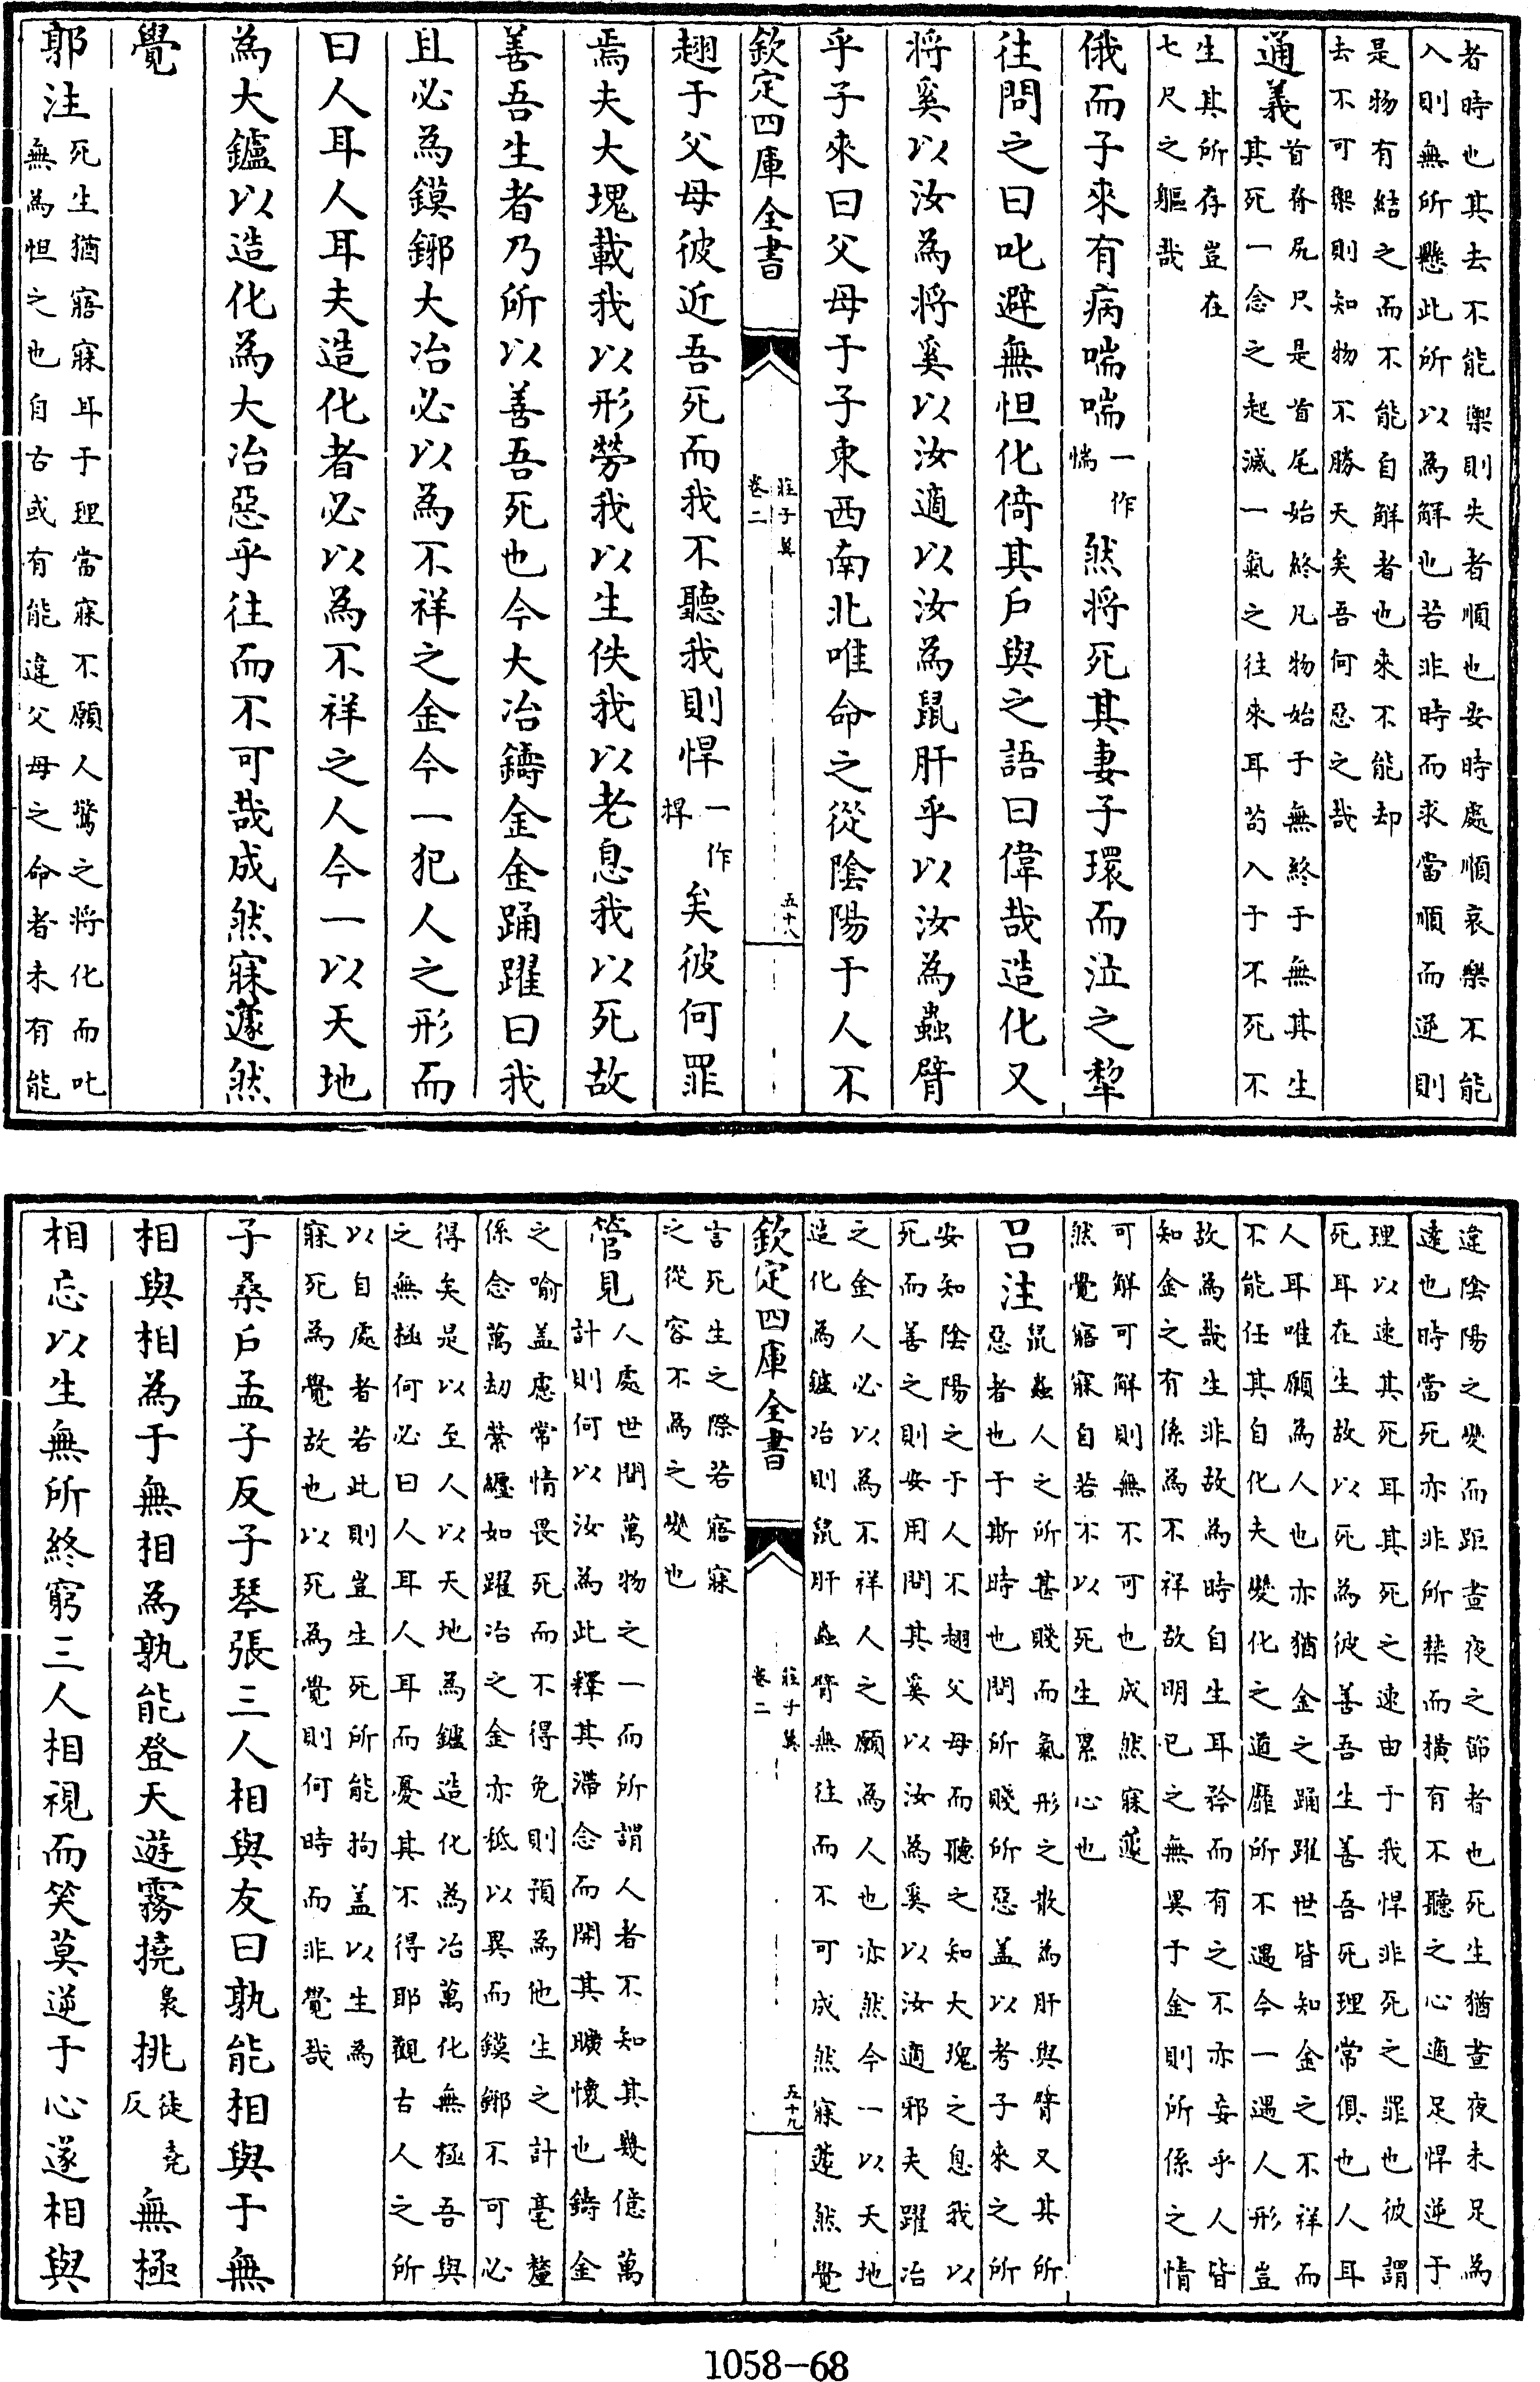 者時也其去不能禦則失者順也安時處順哀樂不能
入則無所懸此所以為解也若非時而求當順而逆則
是物有結之而不能自解者也來不能却
去不可禦則知物不勝天矣吾何惡之哉
通義首脊尻只是首尾始終凡物始于無終于無其生
其死一念之起滅一氣之往來耳苟入于不死不
生其所存豈在
七尺之軀哉
俄而子來有病喘喘一作惴然將死其妻子環而泣之犂
往問之曰叱避無怛化倚其戶與之語曰偉哉造化又
將奚以汝為將奚以汝適以汝為鼠肝乎以汝為蟲臂
乎子來曰父母于子東西南北唯命之從陰陽于人不
欽定四庫全書 莊子翼 卷二 五十八
翅于父母彼近吾死而我不聽我則悍一作捍矣彼何罪
焉夫大塊載我以形勞我以生佚我以老息我以死故
善吾生者乃所以善吾死也今大冶鑄金金踊躍曰我
且必為鏌鋣大冶必以為不祥之金今一犯人之形而
曰人耳人耳夫造化者必以為不祥之人今一以天地
為大鑪以造化為大冶惡乎往而不可哉成然寐蘧然
覺
郭注死生猶寤寐耳于理當寐不願人驚之將化而叱
無為怛之也自古或有能違父母之命者未有能
違陰陽之變而距晝夜之節者也死生猶晝夜未足為
遠也時當死亦非所禁而橫有不聽之心適足悍逆于
理以速其死耳其死之速由于我悍非死之罪也彼謂
死耳在生故以死為彼善吾生善吾死理常俱也人耳
人耳唯願為人也亦猶金之踊躍世皆知金之不祥而
不能任其自化夫變化之道靡所不遇今一遇人形豈
故為哉生非故為時自生耳矜而有之不亦妄乎人皆
知金之有係為不祥故明已之無異于金則所係之情
可解可解則無不可也成然寐蘧
然覺寤寐自若不以死生累心也
呂注鼠蟲人之所甚賤而氣形之散為肝與臂又其所
惡者也于斯時也問所賤所惡盖以考子來之所
安知陰陽之于人不翅父母而聽之知大塊之息我以
死而善之則安用問其奚以汝為奚以汝適邪夫躍冶
之金人必以為不祥人之願為人也亦然今一以天地
造化為鑪冶則鼠肝蟲臂無往而不可成然寐蘧然覺
欽定四庫全書 莊子翼 卷二 五十九
言死生之際若寤寐
之從容不為之變也
管見人處世間萬物之一而所謂人者不知其幾億萬
計則何以汝為此釋其滯念而開其曠懷也鑄金
之喻盖慮常情畏死而不得免則預為他生之計毫釐
係念萬劫縈纏如躍冶之金亦秪以異而鏌鋣不可必
得矣是以至人以天地為鑪造化為冶萬化無極吾與
之無極何必曰人耳人耳而憂其不得耶觀古人之所
以自處者若此則豈生死所能拘盖以生為
寐死為覺故也以死為覺則何時而非覺哉
子桑戶孟子反子琴張三人相與友曰孰能相與于無
相與相為于無相為孰能登天遊霧撓裊挑徒堯反無極
相忘以生無所終窮三人相視而笑莫逆于心遂相與
1058-68